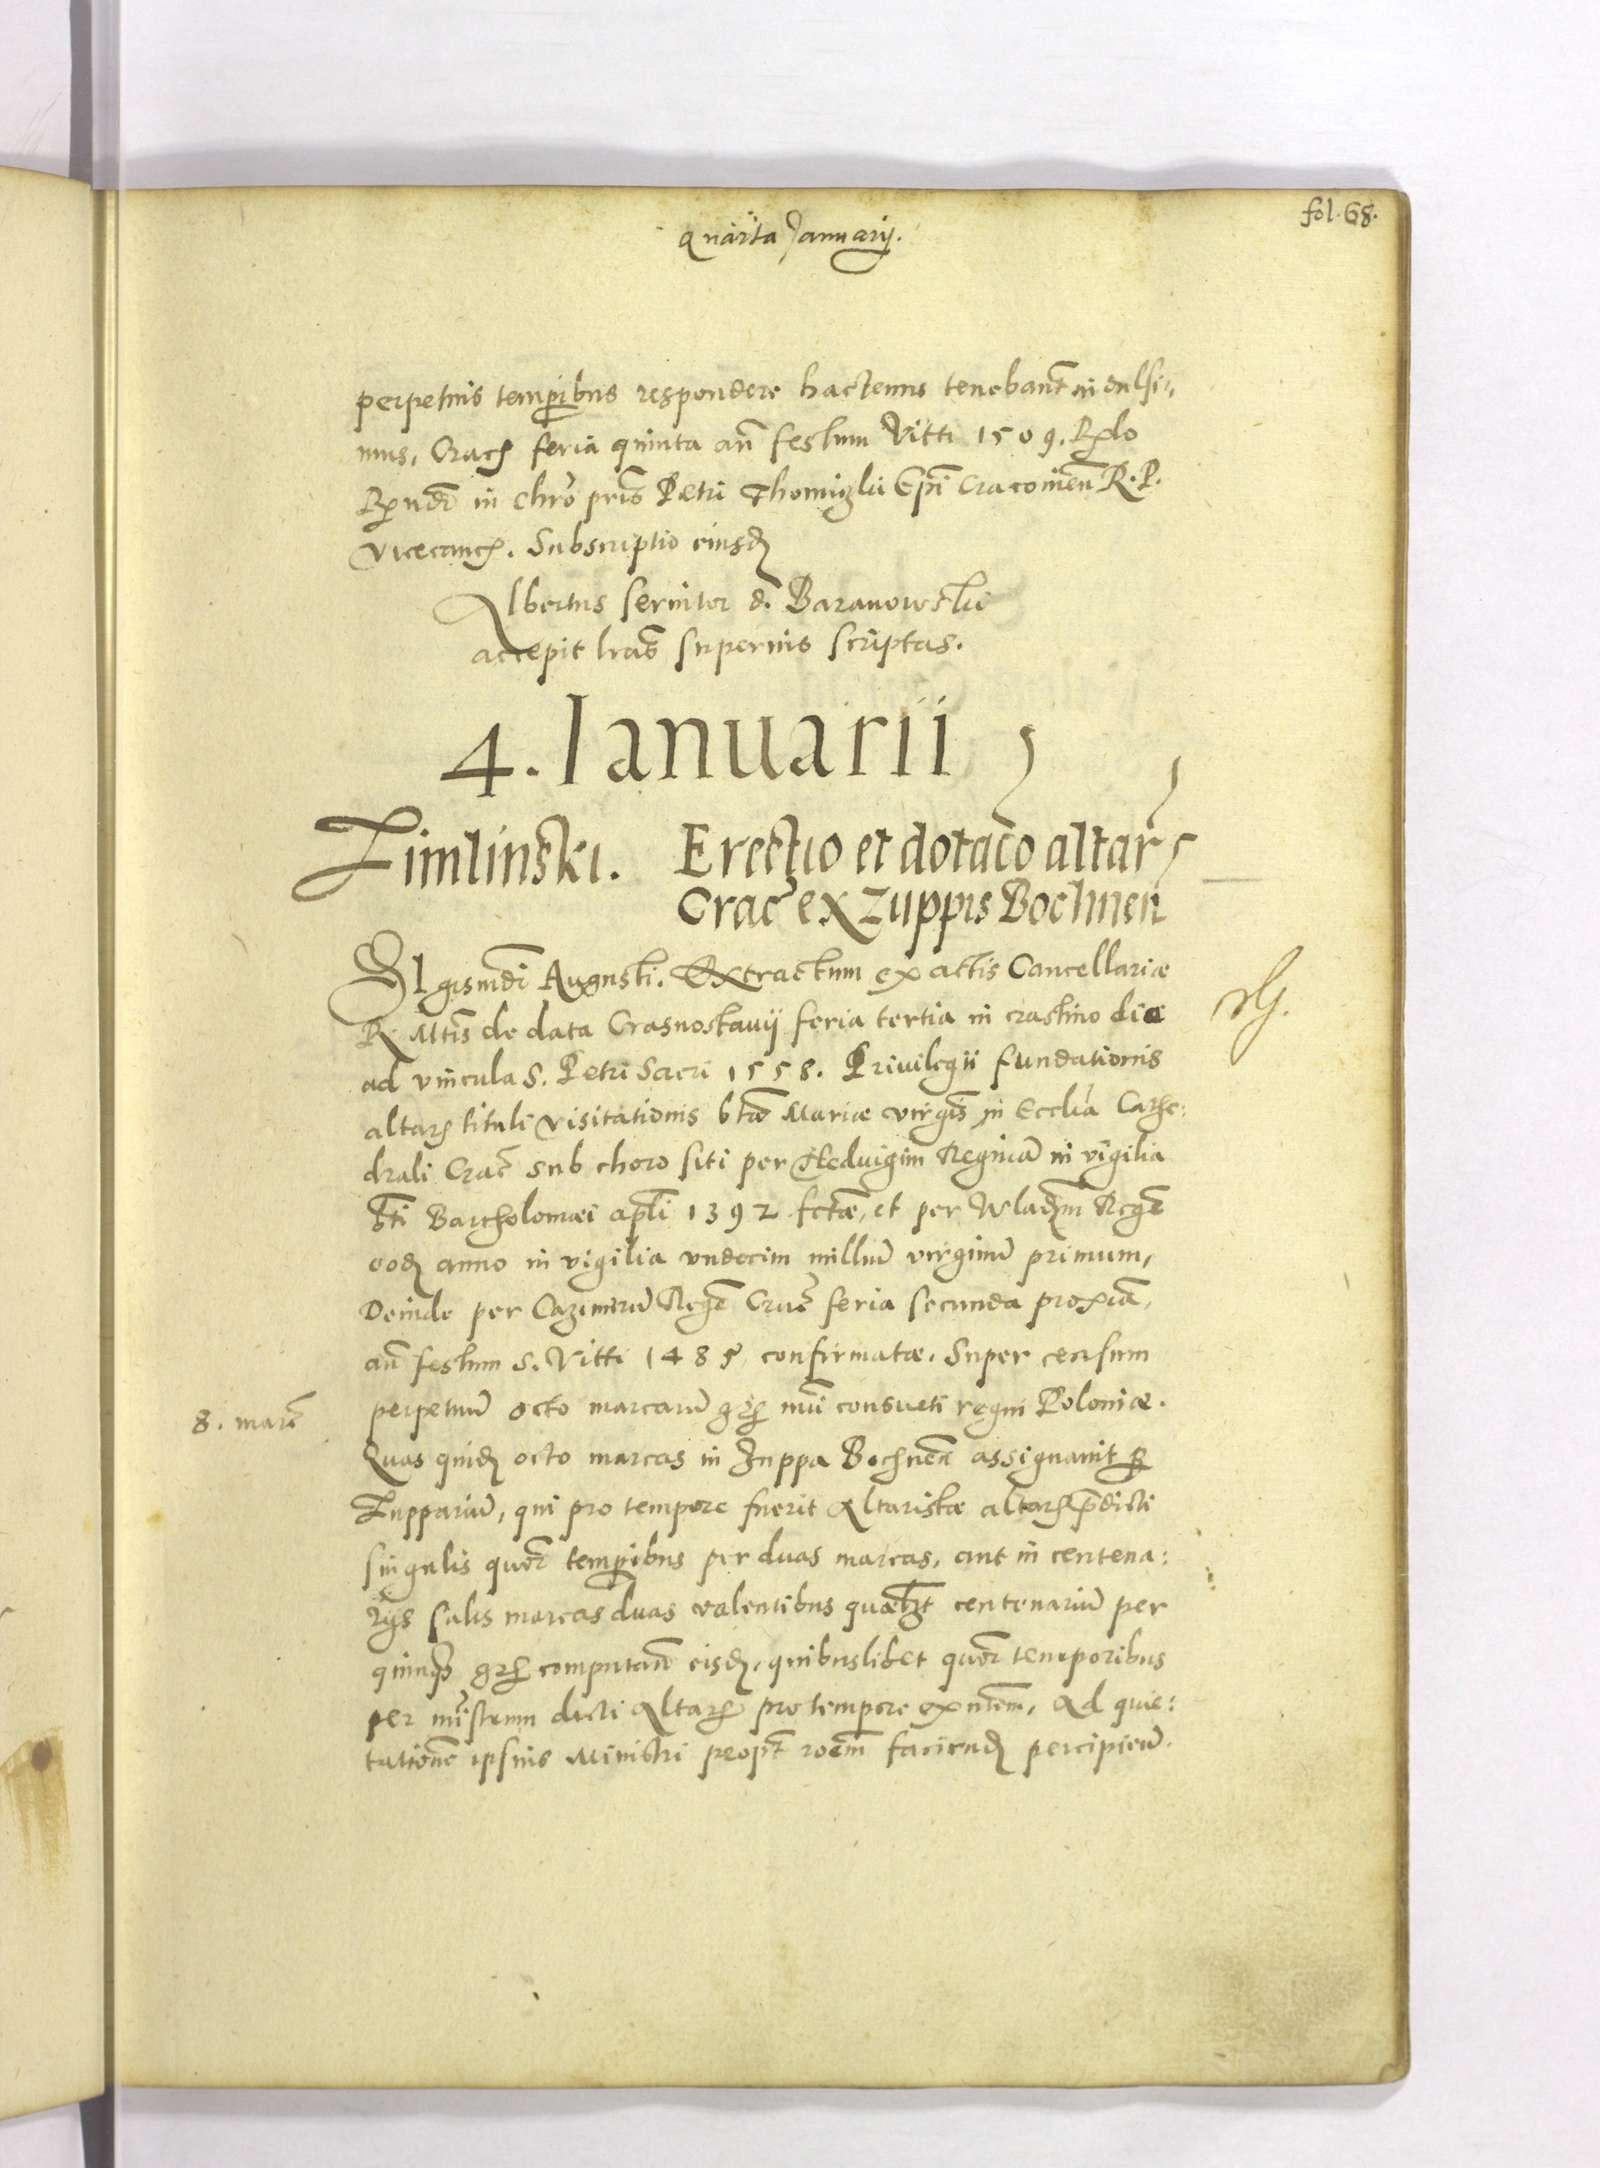 fol. 68.
Quarta Januarij.
perpetuis temporibus respondere hactenus tenebant indulsi,,
mus, Crac feria quinta an festum Vitti 1509. Rlo
Rndi in Chro pris Petri Thomiczki Epi Cracovien R. P.
Vicecanc. Subscriptio eiusd
Albertus servitor d. Baranowski
accepit lras superius scriptas.
4. Ianuarii
Zimlinski. Erectio et dotaco altar
Crac ex Zuppis Bochnen
SIgismdi Augusti. Extractum ex actis Cancellariæ
R. Mtis de data Crasnostavij feria tertia in crastino die
ad vincula S. Petri Sacri 1558. Privilegii fundationis
altar tituli visitationis btæ Mariæ virgis in Ecclia Cathe:
drali Crac sub choro siti per Heduigim Regina in vigilia
bti Bartholomæi apli 1392 fctæ, et per Wladm Rege
eod anno in vigilia undecim milliu virginu primum,
Deinde per Cazimiru Rege Crac feria secunda proxia,
an festum S. Vitti 1485 confirmatæ. Super censum
8. marc perpetuu octo marcaru gr nu consueti regni Poloniæ.
Quas quid octo marcas in Zuppa Bochnen assignavit per
Zuppariu, qui pro tempore fuerit Altaristæ altar pdicti
singulis quor temporibus per duas marcas, aut in centena:
rijs salis marcas duas valentibus quælzt centenariu per
quinq gr computan eisd, quibuslibet quor temporibus
per mistrum dicti Altar pro tempore exntem, Ad quie:
tatione ipsius Ministri propt roem faciend percipiend.